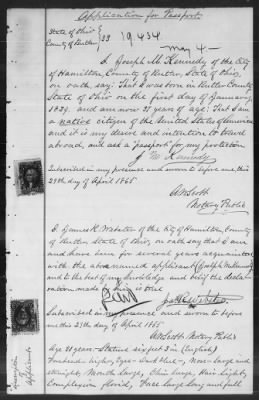 Application for Passport.
State of Ohio
County of Butler } SS 19434
May 4 -
I Joseph M Kennedy of the City
of Hamilton, County of Butler, State of Ohio,
on oath, say: That I was born in Butler County
State of Ohio on the first day of January
1834 and am now 31 years of age: That I am
a native citizen of the United States of America
and it is my desire and intention to travel
abroad, and ask a passport for my protection
J M Kennedy
Subscribed in my presence and sworn to before me, this
29th day of April 1865
Notary Public
I James K. Webster of the City of Hamilton, County
of Butler, State of Ohio, on oath say that I am
and have been for several years acquainted
with the above named applicant (Joseph M Kennedy)
and to the best of my knowledge and belief the decla-
ration made by him is true
Jas K Webster
Subscribed in my presence and sworn to before
me this 29th day of April 1865
Notary Public
Age 31 years - Stature six feet 3 in (English)
Forehead high, Eyes - Dark blue -, Nose - Large and
Straight, Mouth Large, Chin Large, Hair Light,
Complexion florid, Face Large Long and full
Description
of
Applicant